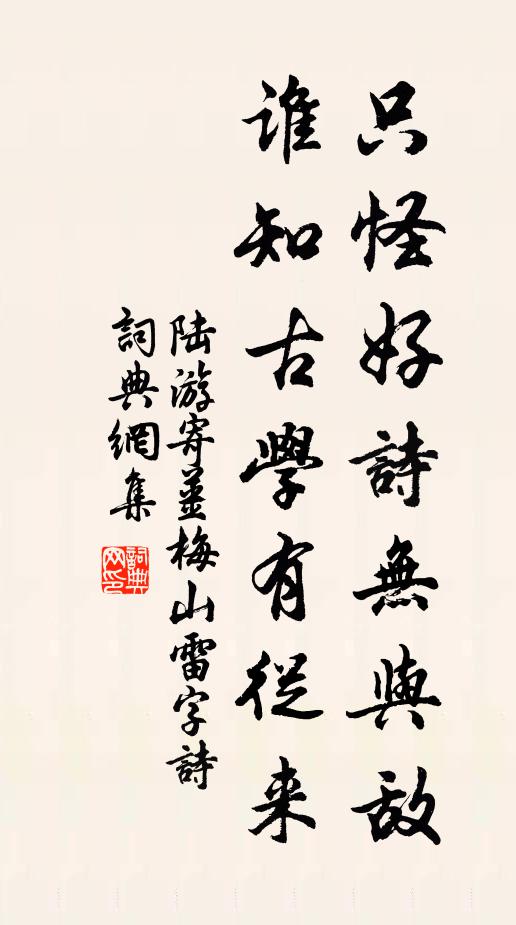 只怪好詩無與敵
誰知古學有從来
陆游寄薑梅山雷字詩
詞典網集
詞典网印